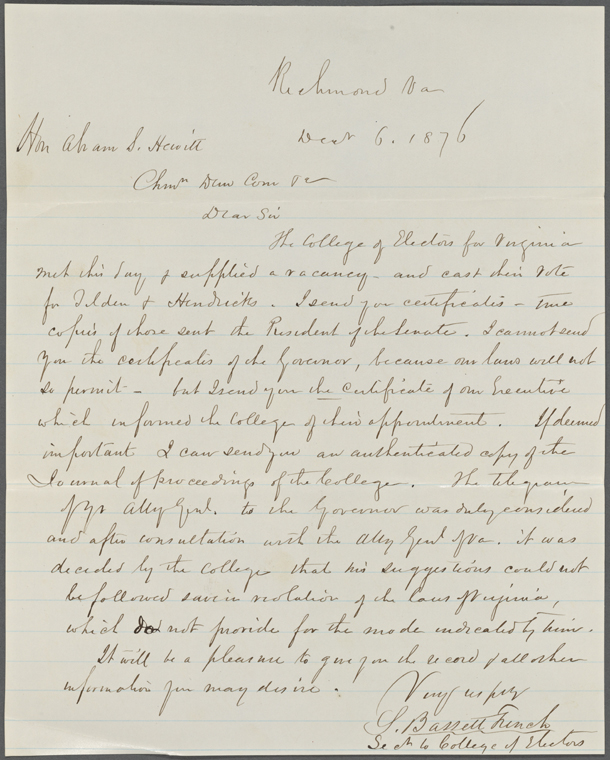 Richmond Va
Decr 6. 1876
Hon Abram S. Hewitt
Chmn Dem Com &c
Dear Sir
The College of Electors for Virginia
met this day & supplied a vacancy - and cast their vote
for Tilden & Hendricks. I send you certificates - true
copies of those sent the President of the Senate. I cannot send
you the certificates of the Governor, because our laws will not
so permit - but I send you the certificate of our Executive
which informed the College of their appointment. If deemed
important I can send you an authenticated copy of the
Journal of proceedings of the College. The telegram
of yr Atty Genl. to the Governor was duly considered
and after consultation with the Atty Genl of Va. it was
decided by the College that his suggestions could not
be followed save in violation of the laws of Virginia,
which do not provide for the mode indicated by him.
It will be a pleasure to give you the record & all other
information you may desire.
Very respy
S. Bassett French
Secty to College of Electors